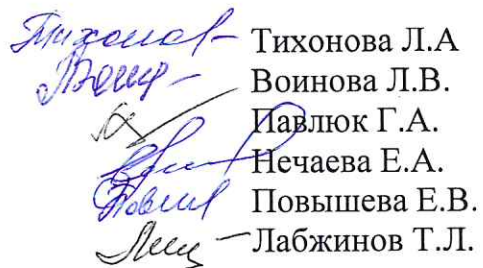 Тихонова Л.А
Воинова Л.В.
Павлюк Г.А.
Нечаева Е.А.
Повышева Е.В.
Лабжинов Т.Л.